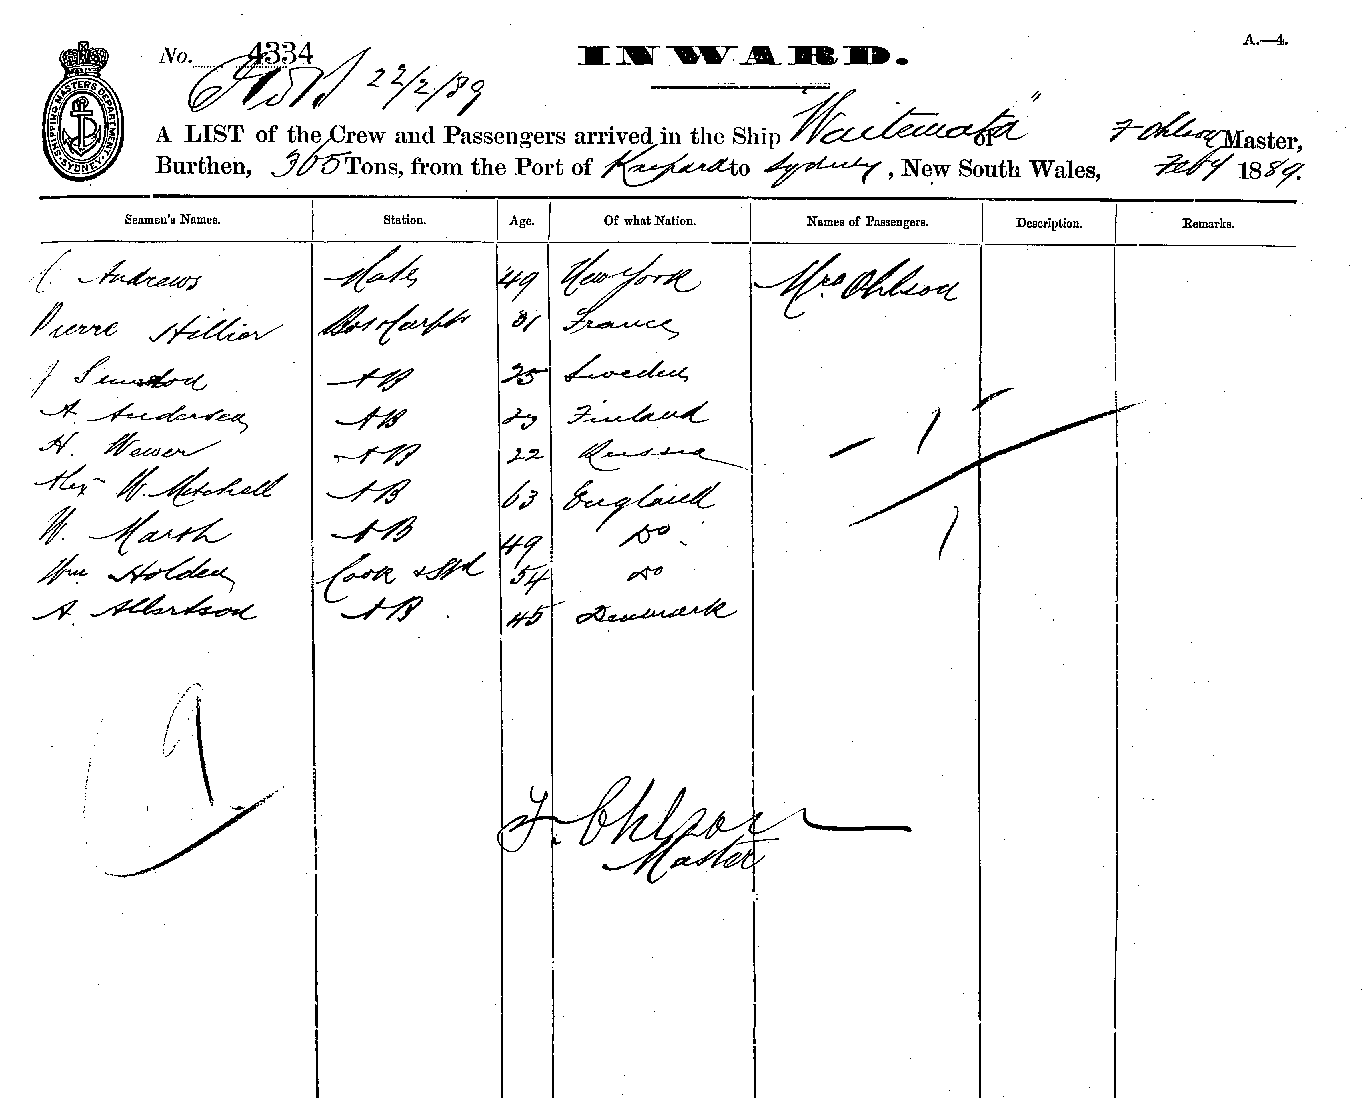 A.—4.
No. 4334
INWARD.
22/2/89
SHIPPING MASTER'S DEPARTMENT SYDNEY
A LIST of the Crew and Passengers arrived in the Ship "Waitemata" of F Ohlson Master,
Burthen, 305 Tons, from the Port of to Sydney, New South Wales, Feby 1889.
Seamen's Names. Station. Age. Of what Nation. Names of Passengers. Description. Remarks.
Andrews Mate 49 New York Mrs Ohlson
Pierre Hillier 31 France
J AB 25 Sweden
A. Andersen AB 23 Finland
H. Wewer AB 22 Russia
Alex W. Mitchell AB 63 England
W. Marsh AB 49 Do
Wm Holden Cook & Std 54 Do
A. Albertson AB 45 Denmark
1
9
F. Ohlson
Master